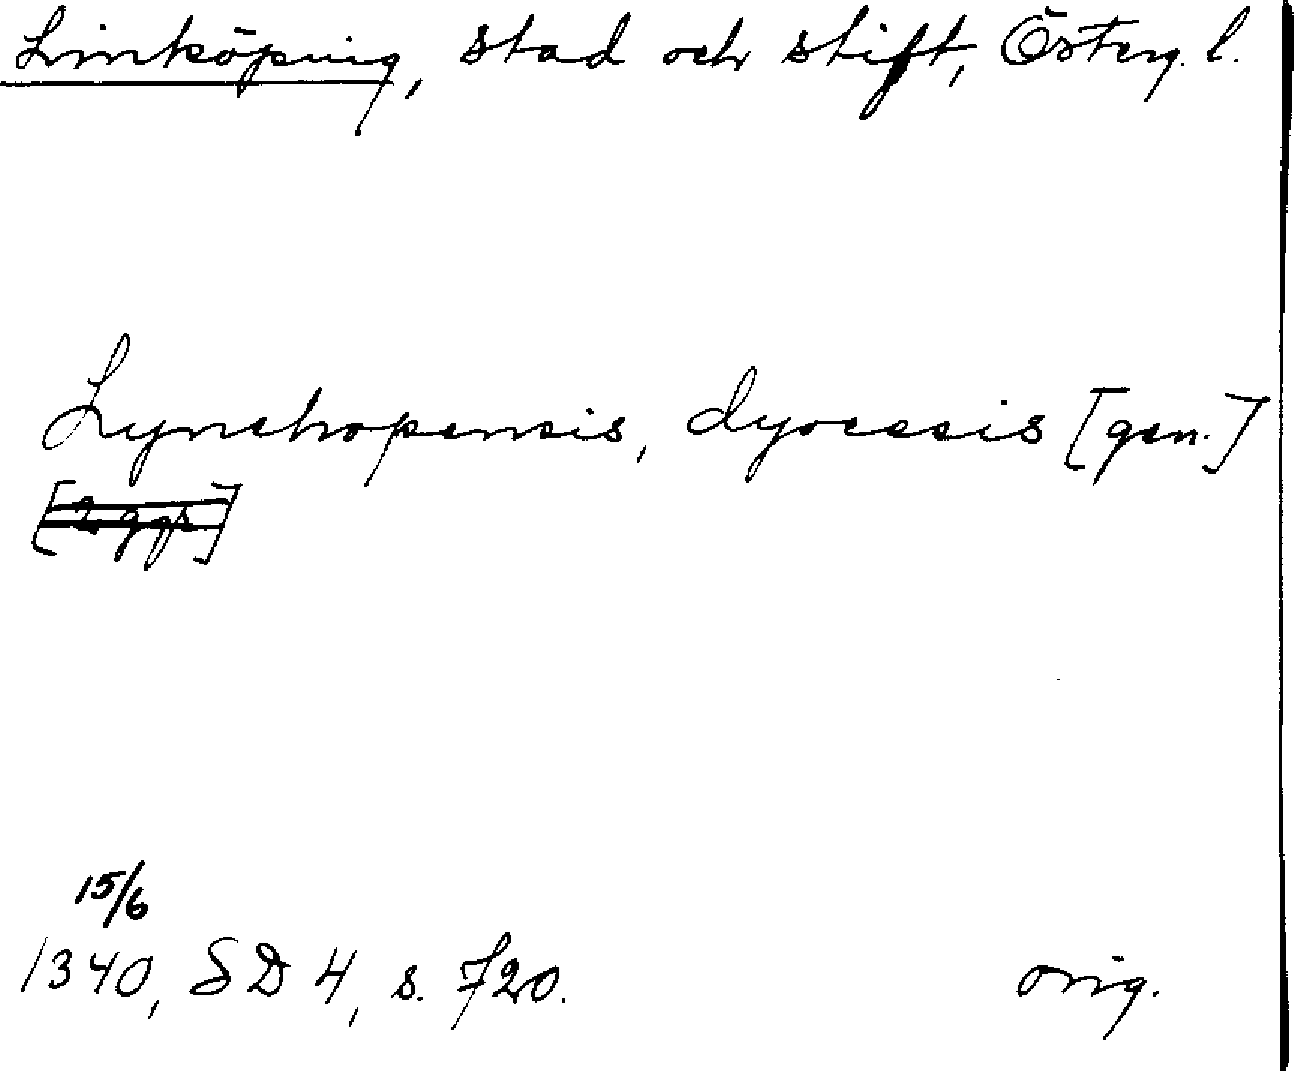 Linköping, stad och stift, Österg. l.
Lynchopensis, dyocesis [gen.]
[2 ggr.]
15/6
1340, SD 4, s. 720.
orig.